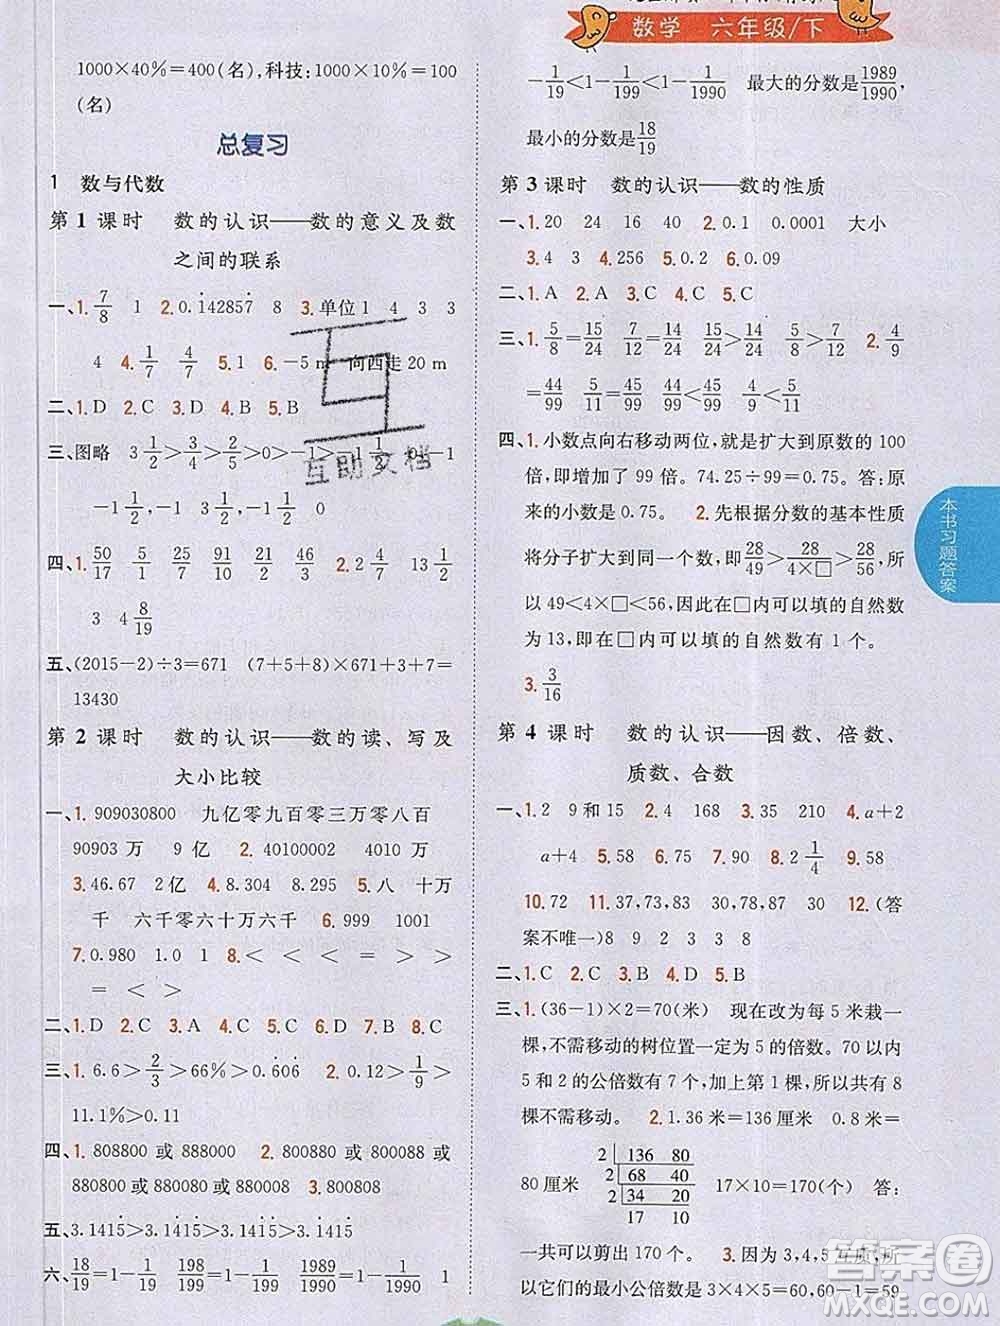 数学 六年级/下
1000×40%=400(名),科技:1000×10%=100
(名)
总复习
1 数与代数
第 1 课时 数的认识——数的意义及数
之间的联系
一、1. 7/8 1 2. 0.1̇42857̇ 8 3. 单位1 4 3 3
4 4. 1/7 4/7 5. 1 6. −5 m 向西走 20 m
二、1. D 2. C 3. A 4. D 5. B
三、图略 3 1/2>3/4>2/5>0>−1>−1 1/2 0 −1
−1 1/2,−1 3 1/2,−1 −1 1/2 0
四、1. 50/17 5/17 75/90 25/90 17/90 2. 2 4/7 13 1/2
3 4 8/19
五、(2015−2)÷3=671 (7+5+8)×671+3+7=
13430
第 2 课时 数的认识——数的读、写及
大小比较
一、1. 909030800 九亿零九百零三万零八百
90903 万 9 亿 2. 40100002 4010 万
3. 46.67 2 亿 4. 8.304 8.295 5. 八 十万
千 六千零六十万六千 6. 999 1001
7. 0.980 1.0 1 8. < < < <
> > > <
二、1. D 2. C 3. C 4. A 5. B 6. A 7. B 8. C
三、1. 6.6>2/3>66%>0.6̇06̇ 2. 1.2>1/9>
11.1%>0.11
四、1. 808800 或 888000 2. 800808 或
880800 或 880080 或 880008 3. 800808
五、3.1415̇>3.141̇5̇>3.1̇415̇>3.14̇15̇
六、18/19=1−1/19 198/199=1−1/199 1989/1990=1−1/1990 1
−1/19<1−1/199<1−1/1990 最大的分数是1989/1990
最小的分数是18/19
第 3 课时 数的认识——数的性质
一、1. 20 24 16 40 2. 0.1 0.0001 大小
3. 4 3 4. 256 5. 0.2 6. 0.09
二、1. A 2. A 3. C 4. B 5. C
三、1. 5/8=15/24 7/12=14/24 15/24>14/24 5/8>7/12 2. 4/9
=44/99 5/11=45/99 44/99<45/99 4/9<5/11
四、1. 小数点向右移动两位,就是扩大到原数的 100
倍,即增加了 99 倍。74.25÷99=0.75 答:原
来的小数是 0.75。 2. 先根据分数的基本性质
将分子扩大到同一个数,即28/49>28/4×□>28/56,所
以 49<4×□<56,因此□内可以填的自然数
为 13,即在□内可以填的自然数有 1 个。
3. 3/16
第 4 课时 数的认识——因数、倍数、
质数、合数
一、1. 2 9 和 15 2. 4 168 3. 35 210 4. a+2
a+4 5. 58 6. 75 7. 90 8. 30 9. 2 1/4
10. 72 11. 37,73,83 30,78,87 30 12. (答
案不唯一)8 9 2 3 3 8
二、1. C 2. C 3. A 4. D 5. B
三、1. (36−1)×2=70(米) 现在改为每 5 米栽一
棵,不需移动的树位置一定为 5 的倍数。70 以内
5 和 2 的公倍数有 7 个,加上第 1 棵,所以共有 8
棵不需移动。 2. 1.36 米=136 厘米 0.8 米=
80 厘米 17×10=170(个) 答:
2 136 80
2 68 40
2 34 20
17 10
一共可以剪出 170 个。 3. 因为 3,4,5 互质,所
以它们的最小公倍数是 3×4×5=60,60−1=59
本书习题答案
互助文档
答案圈
MXQE.COM